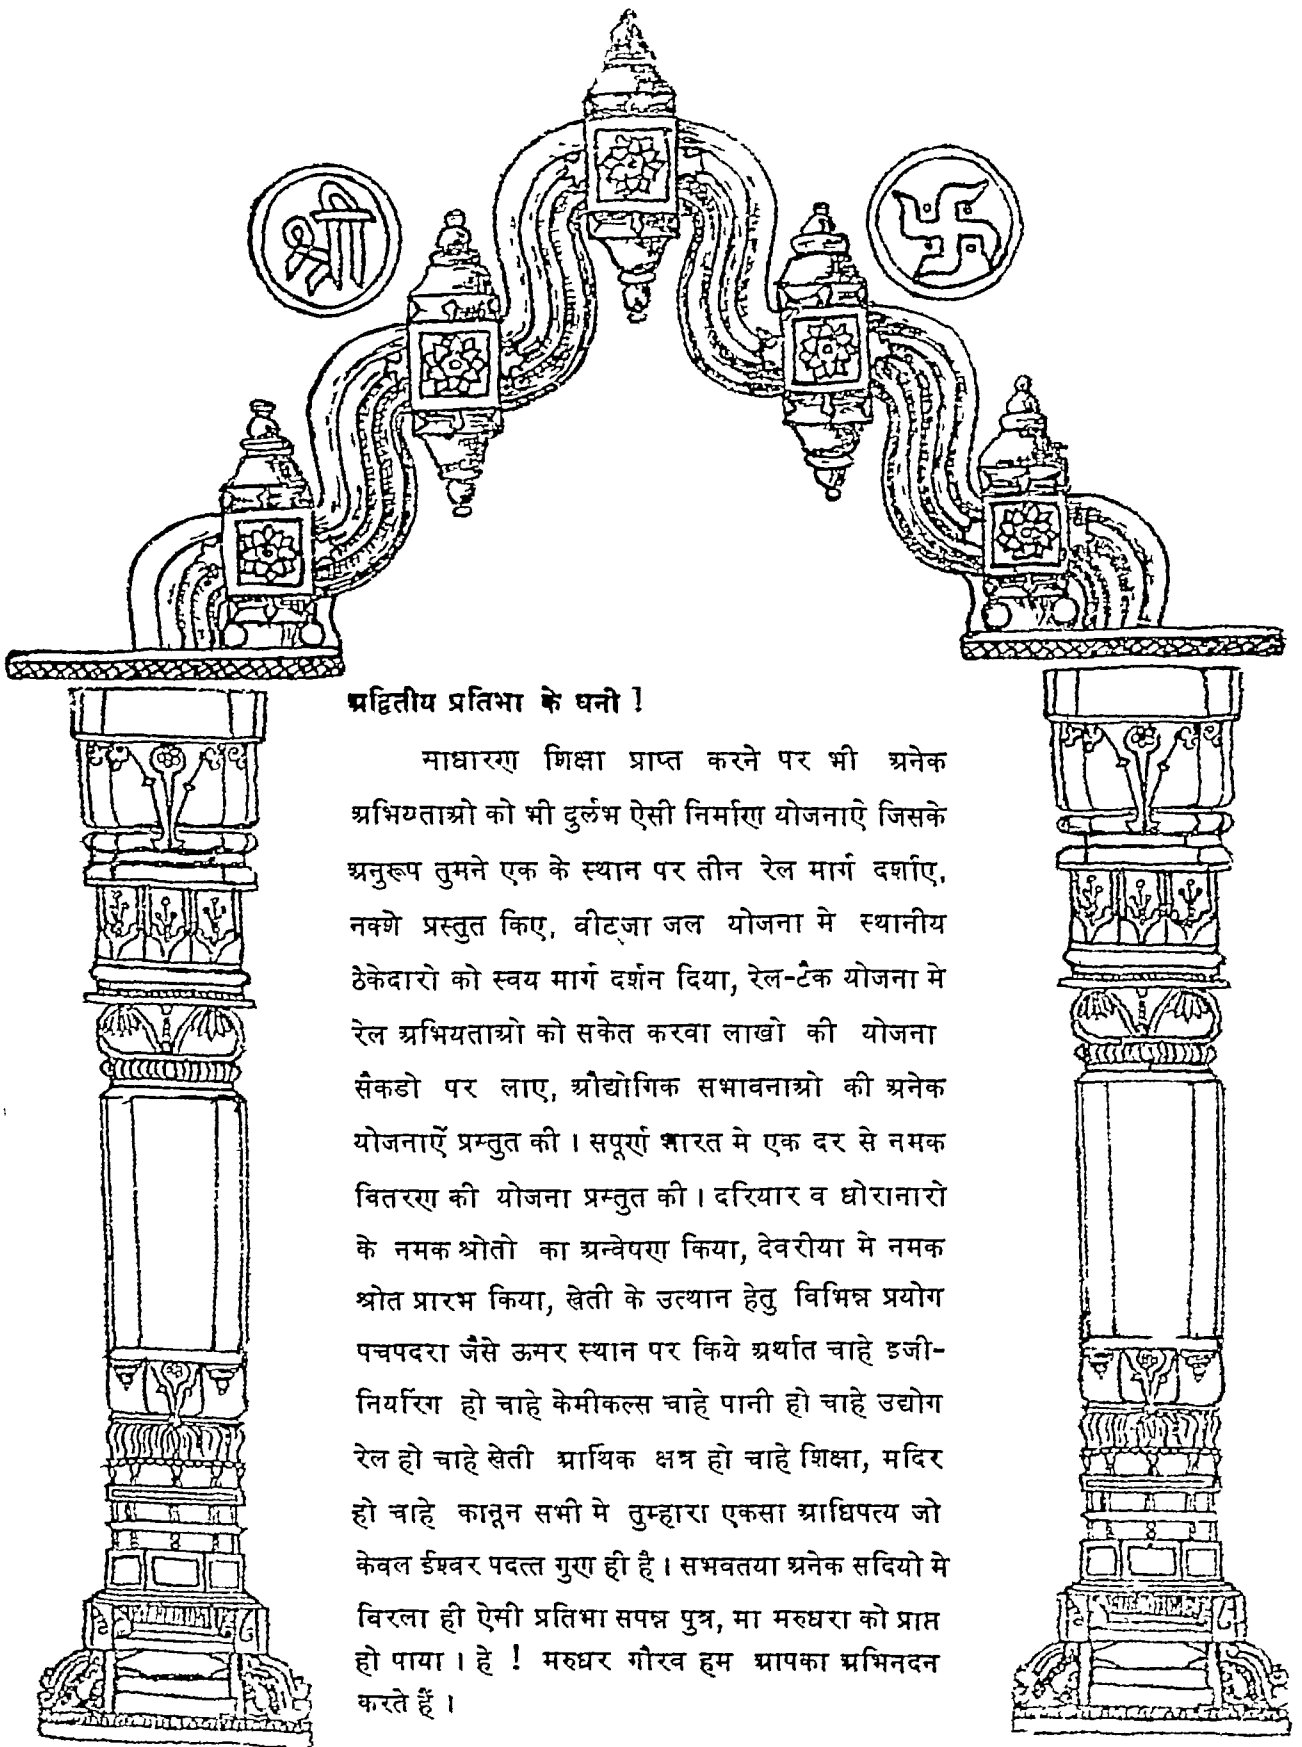 श्री
अद्वितीय प्रतिभा के धनी !
साधारण शिक्षा प्राप्त करने पर भी अनेक
अभियताओ को भी दुर्लभ ऐसी निर्माण योजनाऐ जिसके
अनुरूप तुमने एक के स्थान पर तीन रेल मार्ग दर्शाए,
नक्शे प्रस्तुत किए, वीट्जा जल योजना मे स्थानीय
ठेकेदारो को स्वय मार्ग दर्शन दिया, रेल-टैक योजना मे
रेल अभियताओ को सकेत करवा लाखो की योजना
सैकडो पर लाए, औद्योगिक सभावनाओ की अनेक
योजनाऐं प्रस्तुत की । सपूर्ण भारत मे एक दर से नमक
वितरण की योजना प्रस्तुत की । दरियार व धोरानारो
के नमक श्रोतो का अन्वेषण किया, देवरीया मे नमक
श्रोत प्रारभ किया, खेती के उत्थान हेतु विभिन्न प्रयोग
पचपदरा जैसे ऊसर स्थान पर किये अर्थात चाहे इजी-
नियरिंग हो चाहे केमीकल्स चाहे पानी हो चाहे उद्योग
रेल हो चाहे खेती आर्थिक क्षत्र हो चाहे शिक्षा, मदिर
हो चाहे कानून सभी मे तुम्हारा एकसा आधिपत्य जो
केवल ईश्वर पदत्त गुण ही है । सभवतया अनेक सदियो मे
विरला ही ऐसी प्रतिभा सपन्न पुत्र, मा मरुधरा को प्राप्त
हो पाया । हे ! मरुधर गौरव हम आपका अभिनदन
करते हैं ।